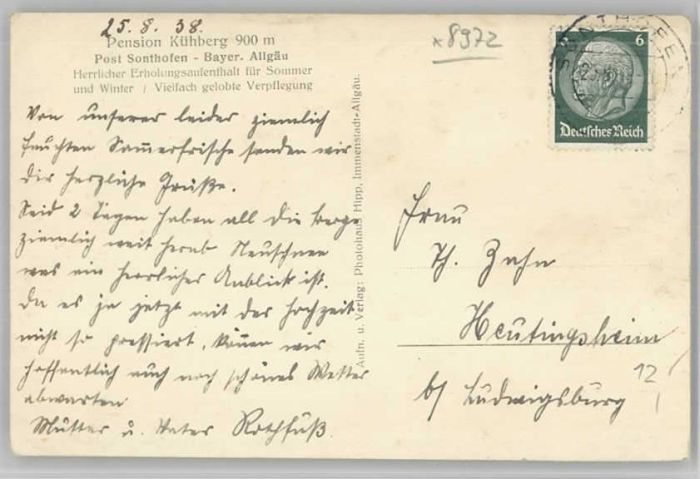 25.8.38.
Pension Kühberg 900 m
Post Sonthofen - Bayer. Allgäu
Herrlicher Erholungsaufenthalt für Sommer
und Winter / Vielfach gelobte Verpflegung
Von unserer leider ziemlich
feuchten Sommerfrische senden wir
Dir herzliche Grüße.
Seid 2 Tagen haben all die Berge
ziemlich weit herab Neuschnee
was ein herrlicher Anblick ist.
Da es ja jetzt mit der Hochzeit
nicht so pressiert, können wir
hoffentlich auch noch schönes Wetter
abwarten
Mutter u. Vater Rothfuß.
Aufn. u. Verlag: Photohaus Hipp, Immenstadt-Allgäu.
*8972
SONTHOFEN
6
Deutsches Reich
Frau
Th. Zahn
Heutingsheim
b/ Ludwigsburg
12